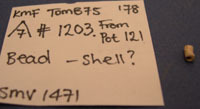 KMF TOMB75 '78
# 1203. From
Pot 121
Bead - shell?
SMV 1471